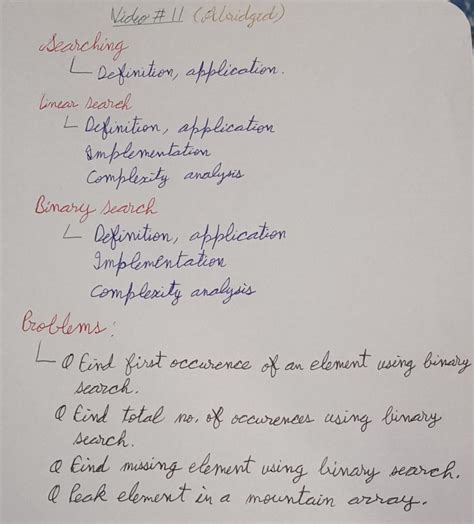 Video # 11 (Abridged)
Searching
Definition, application.
Linear search
Definition, application
Implementation
Complexity analysis
Binary search
Definition, application
Implementation
Complexity analysis
Problems:
Q Find first occurence of an element using binary
search.
Q Find total no. of occurences using binary
search.
Q Find missing element using binary search.
Q Peak element in a mountain array.